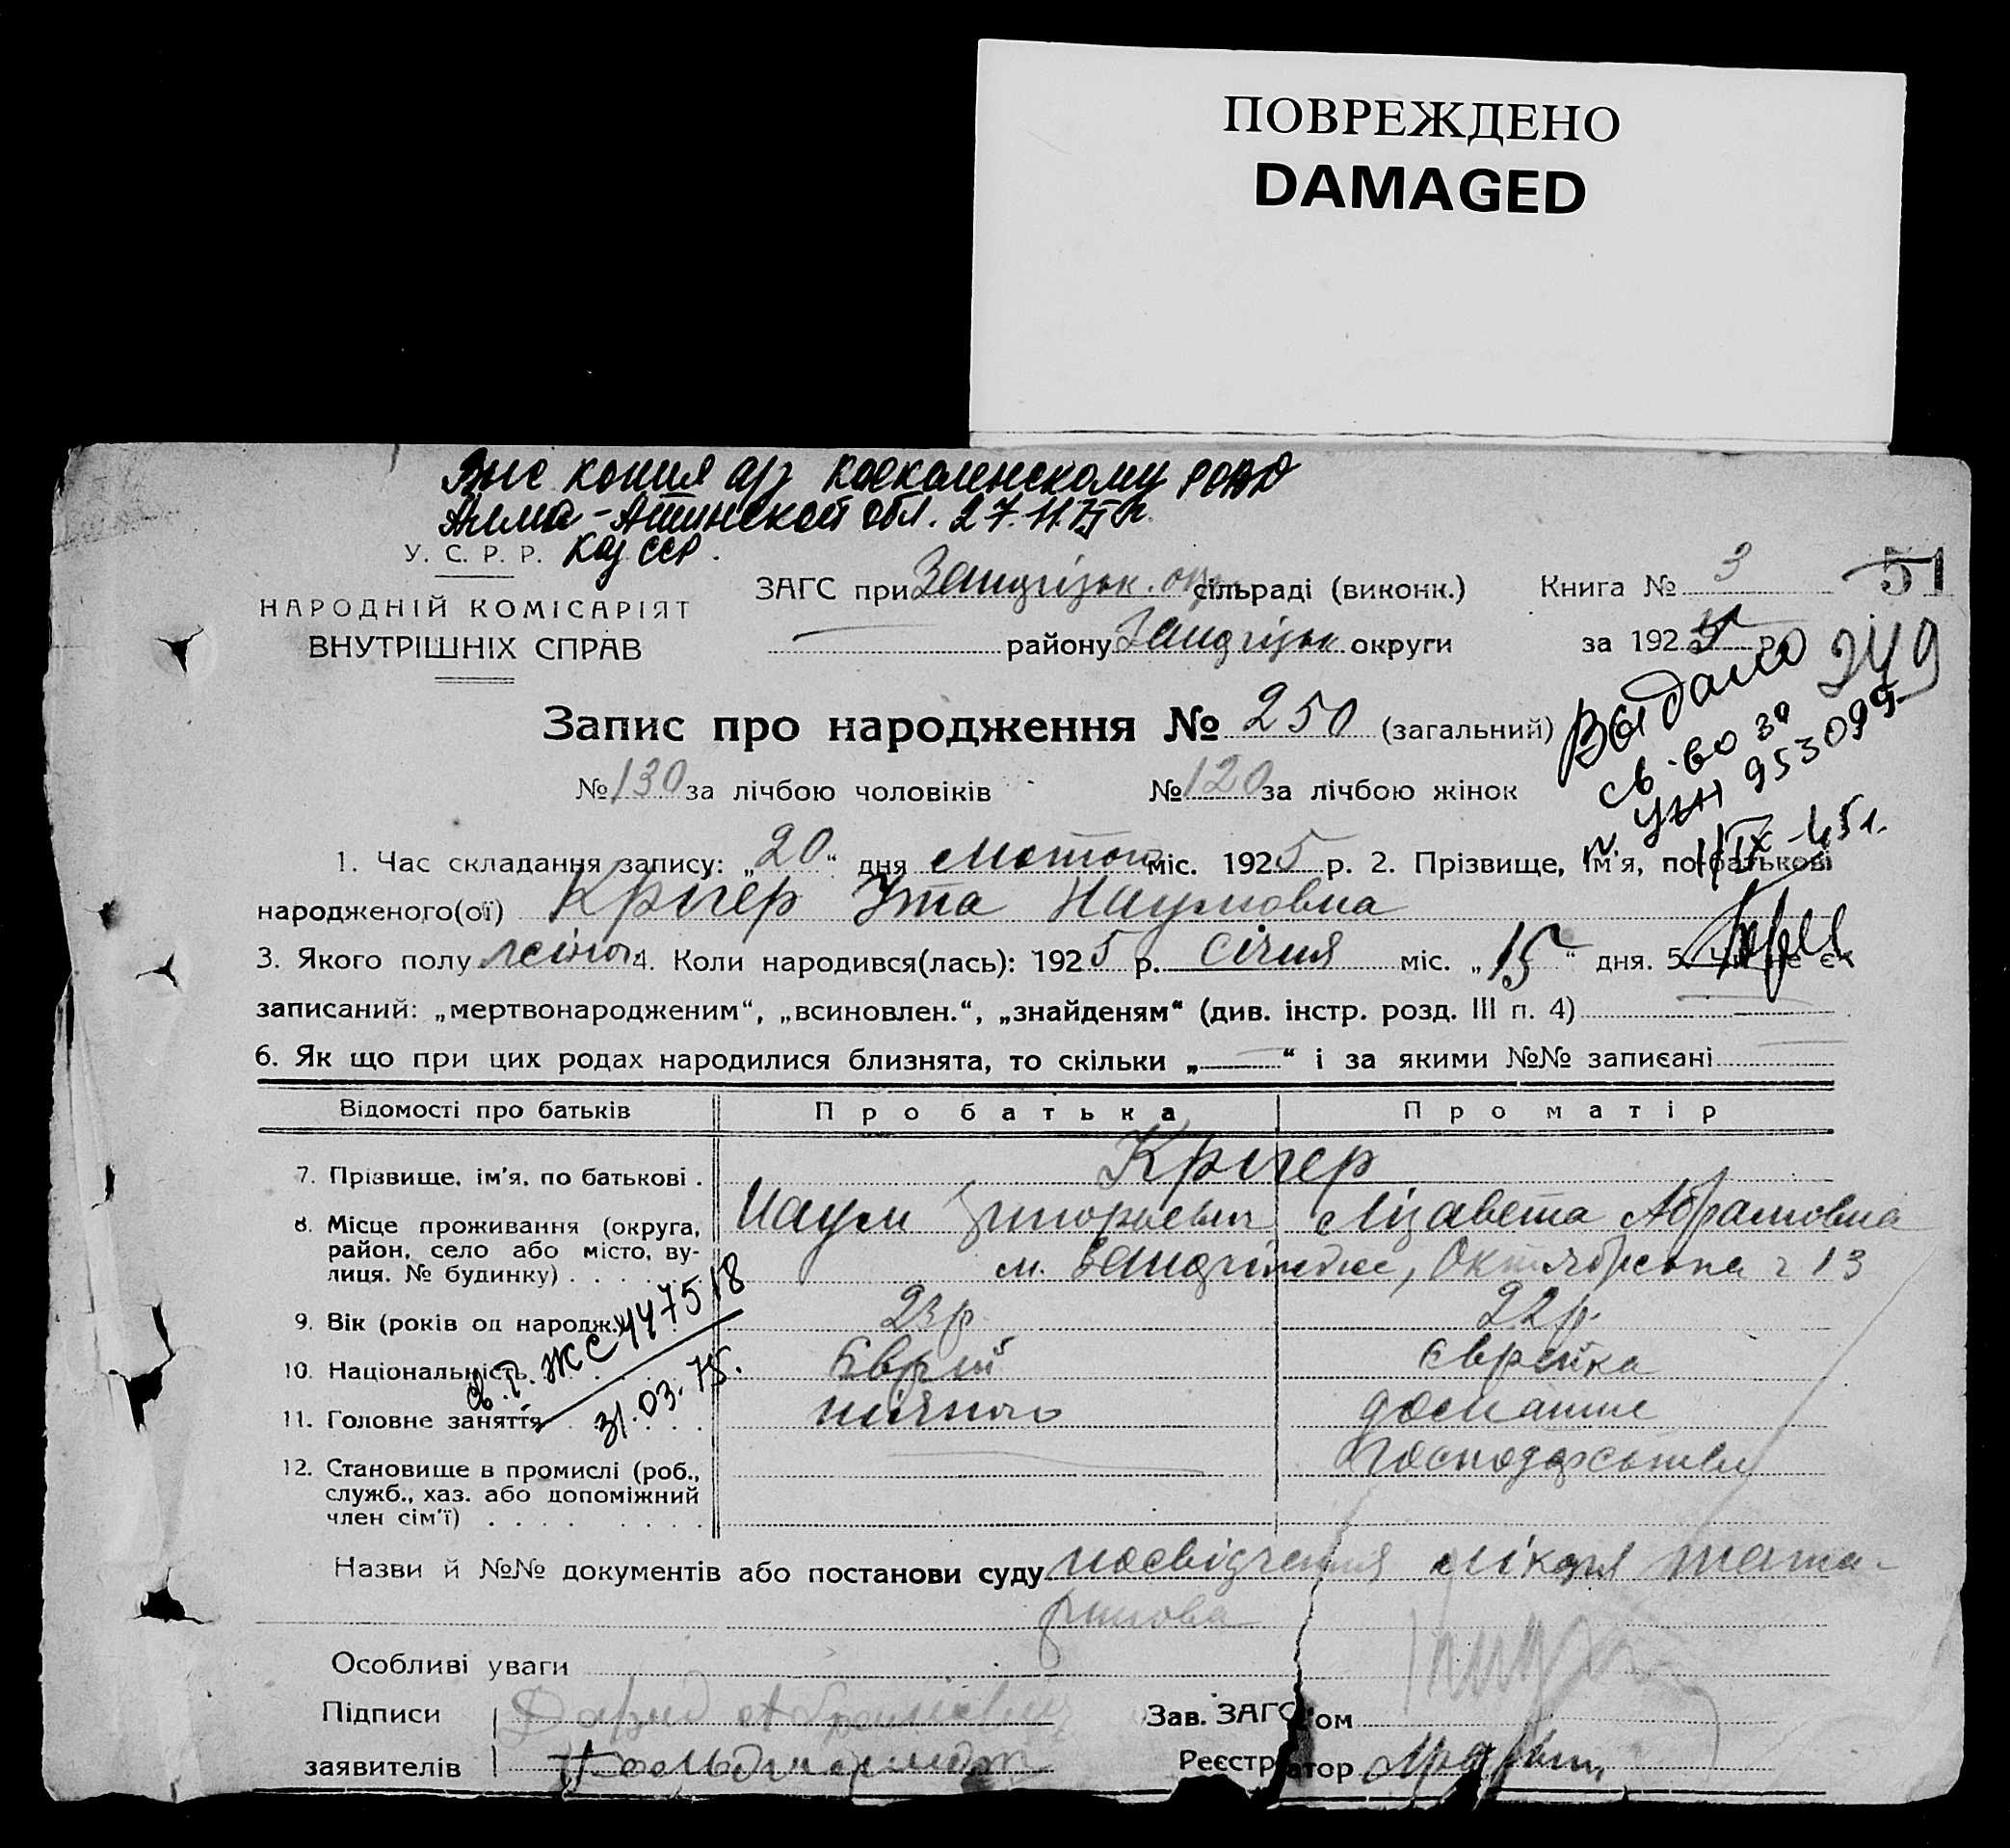 ПОВРЕЖДЕНО
DAMAGED
копия а/з Каскеленскому РОВД
Алма-Атинской обл. 27.11.75 г.
Каз ССР.
У. С. Р. Р.
НАРОДНІЙ КОМІСАРІЯТ
ВНУТРІШНІХ СПРАВ
ЗАГС при сільраді (виконк.)
району округи
Книга № 3
51
за 1925 р.
249
Выдано
св-во за
№ УЖН 953099
11/IX-45 г.
Запис про народження № 250 (загальний)
№ 130 за лічбою чоловіків № 120 за лічбою жінок
1. Час складання запису: „20“ дня лютого міс. 1925 р. 2. Прізвище, ім'я, по-батькові
народженого(ої) Крігер Ута Наумовна
3. Якого полу жіноч. 4. Коли народився(лась): 1925 р. січня міс. „15“ дня. 5. Чи не є
записаний: „мертвонародженим“, „всиновлен.“, „знайденям“ (див. інстр. розд. III п. 4)
6. Як що при цих родах народилися близнята, то скільки „—“ і за якими №№ записані
Відомості про батьків Про батька Про матір
7. Прізвище, ім'я, по батькові . Крігер
Наум Лізавета Абрамовна
8. Місце проживання (округа,
район, село або місто, ву-
лиця, № будинку) . . . . м. Октябрська 13
9. Вік (років од народж.) 23 р. 22 р.
10. Національність Єврей Єврейка
11. Головне заняття домашнє
господарство
св. ЖС 447518
31.03.75.
12. Становище в промислі (роб.,
служб., хаз. або допоміжний
член сім'ї) . . . .
Назви й №№ документів або постанови суду посвідчення лікаря
Особливі уваги
Підписи Давид Абрамович
заявителів
Зав. ЗАГС'ом
Реєстратор